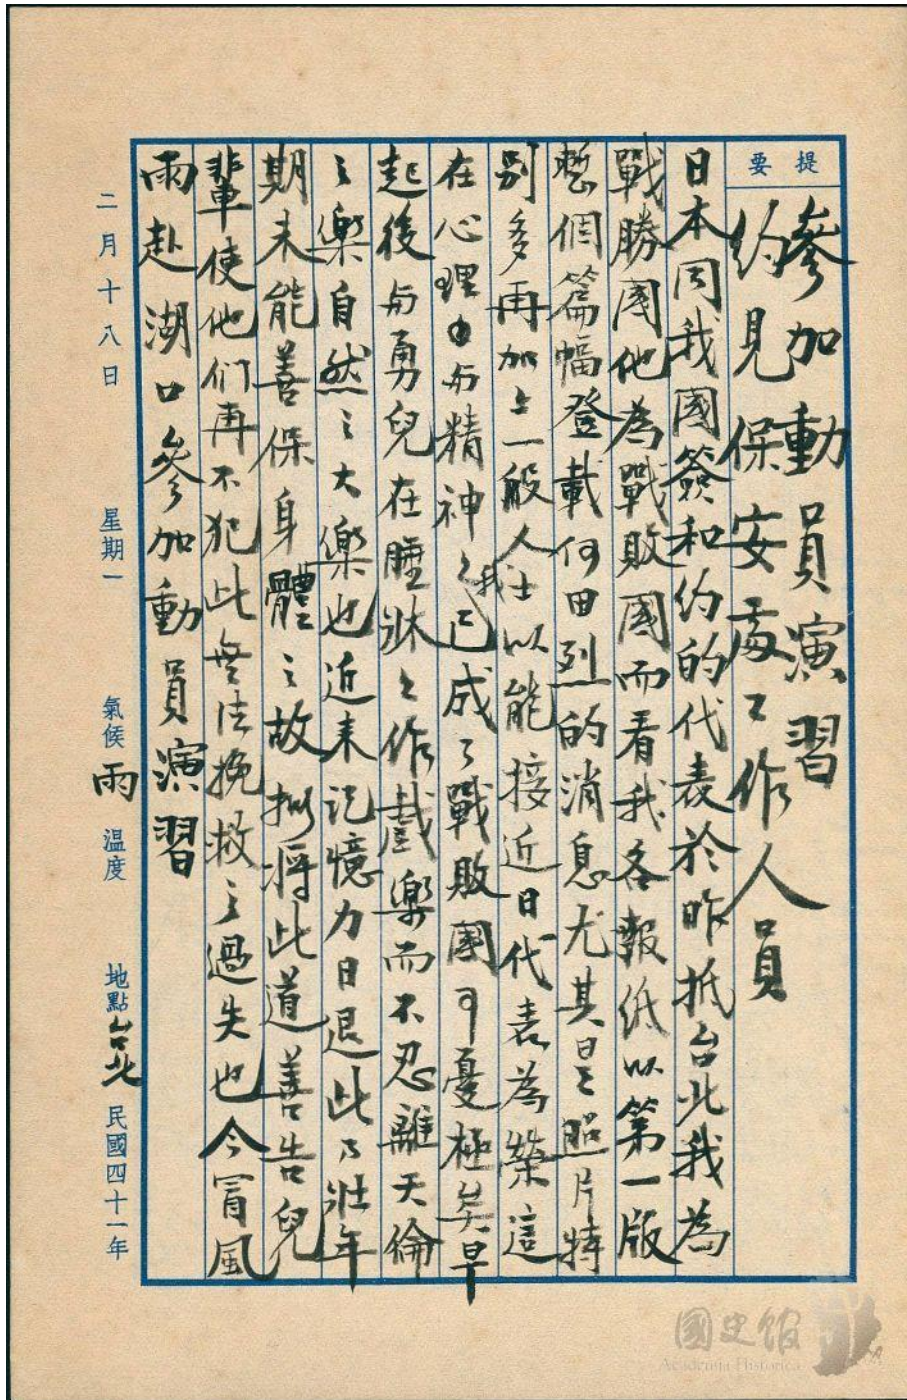 提要
參加動員演習
約見保安處工作人員
日本同我國簽和約的代表於昨抵台北我為
戰勝國他為戰敗國而看我各報紙以第一版
整個篇幅登載何田烈的消息尤其是照片特
別多再加上一般人士以能接近日代表為榮這
在心理由與精神之我已成了戰敗國可憂極矣早
起後與勇兒在睡牀上作戲樂而不忍離天倫
之樂自然之大樂也近來記憶力日退此乃壯年
期未能善保身體之故擬將此道善告兒
輩使他們再不犯此無法挽救之過失也今冒風
雨赴湖口參加動員演習
二月十八日 星期一 氣候 雨 溫度 地點 台北 民國四十一年
國史館
Academia Historica